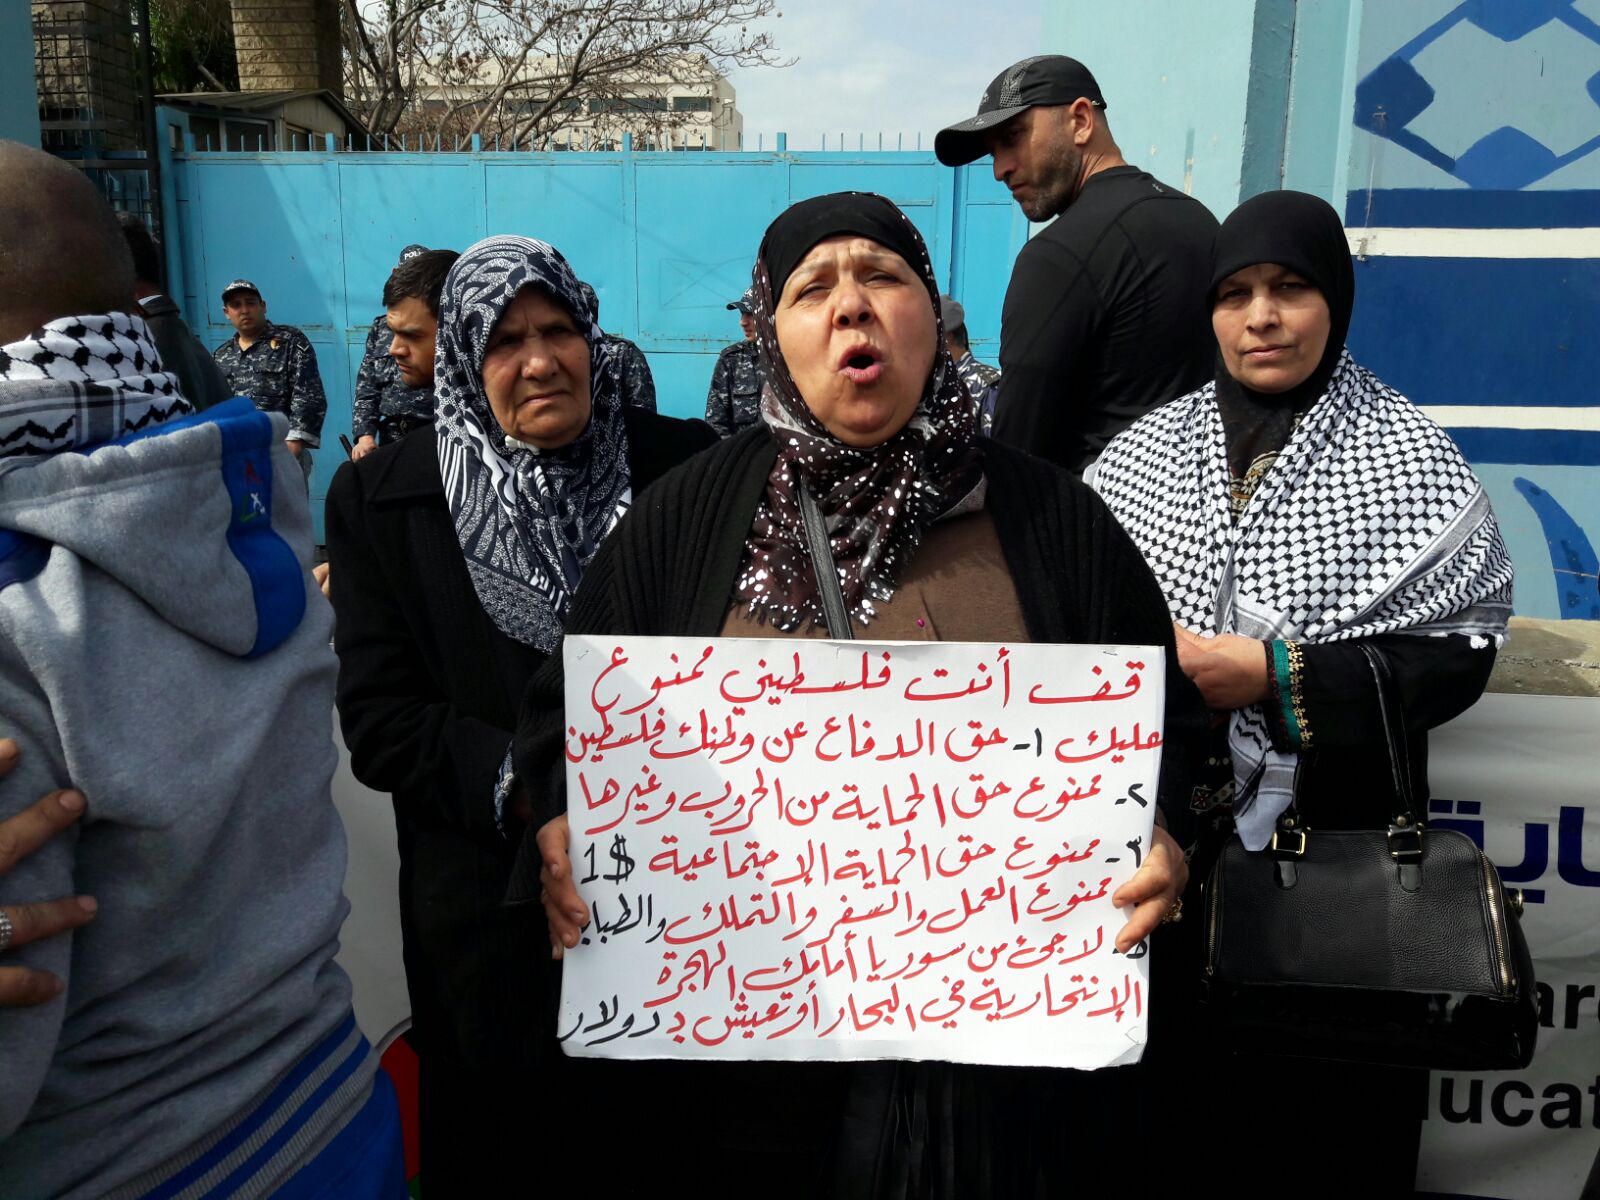 قف أنت فلسطيني ممنوع
عليك ١- حق الدفاع عن وطنك فلسطين
٢- ممنوع حق الحماية من الحروب وغيرها
٣- ممنوع حق الحماية الإجتماعية 1$
ممنوع العمل والسفر والتملك والطبابة
٥- لاجئ من سوريا أمامك الهجرة
الإنتحارية في البحار أو تعيش بـ دولار